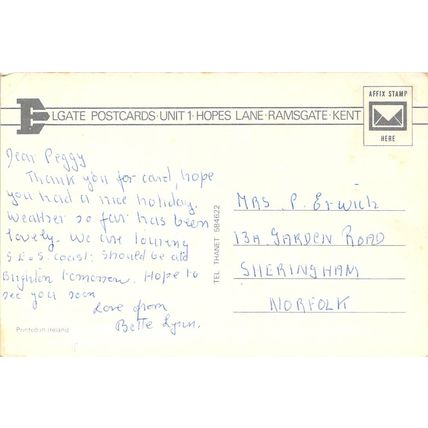 AFFIX STAMP
HERE
ELGATE POSTCARDS · UNIT 1 · HOPES LANE · RAMSGATE · KENT
Dear Peggy
Thank you for card, hope
you had a nice holiday.
Weather so far has been
lovely. We are touring
S.E. & S. coast; should be at
Brighton tomorrow. Hope to
see you soon
Love from
Bette Lynn.
Printed in Ireland
TEL THANET 584622
MRS. P. Erwich
13A GARDEN ROAD
SHERINGHAM
NORFOLK